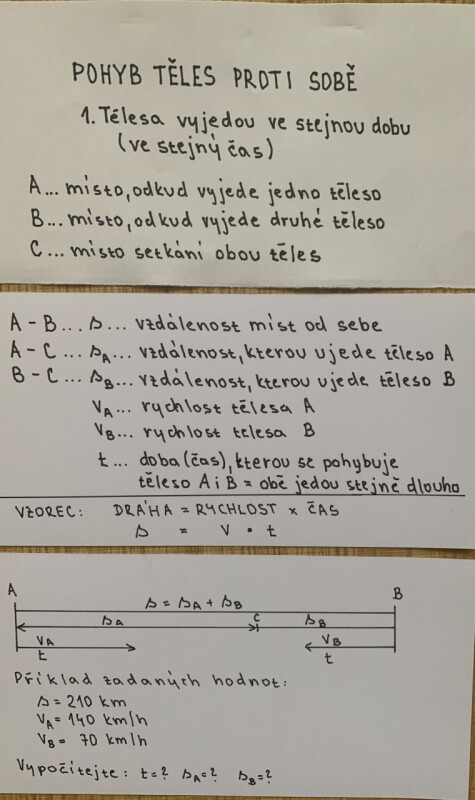 POHYB TĚLES PROTI SOBĚ
1. Tělesa vyjedou ve stejnou dobu
(ve stejný čas)
A... místo, odkud vyjede jedno těleso
B... místo, odkud vyjede druhé těleso
C... místo setkání obou těles
A - B ... s ... vzdálenost míst od sebe
A - C ... sA ... vzdálenost, kterou ujede těleso A
B - C ... sB ... vzdálenost, kterou ujede těleso B
vA ... rychlost tělesa A
vB ... rychlost telesa B
t ... doba (čas), kterou se pohybuje
těleso A i B = obě jedou stejně dlouho
VZOREC: DRÁHA = RYCHLOST × ČAS
s = v · t
A B
s = sA + sB
sA C sB
vA vB
t t
Příklad zadaných hodnot:
s = 210 km
vA = 140 km/h
vB = 70 km/h
Vypočítejte: t = ? sA = ? sB = ?